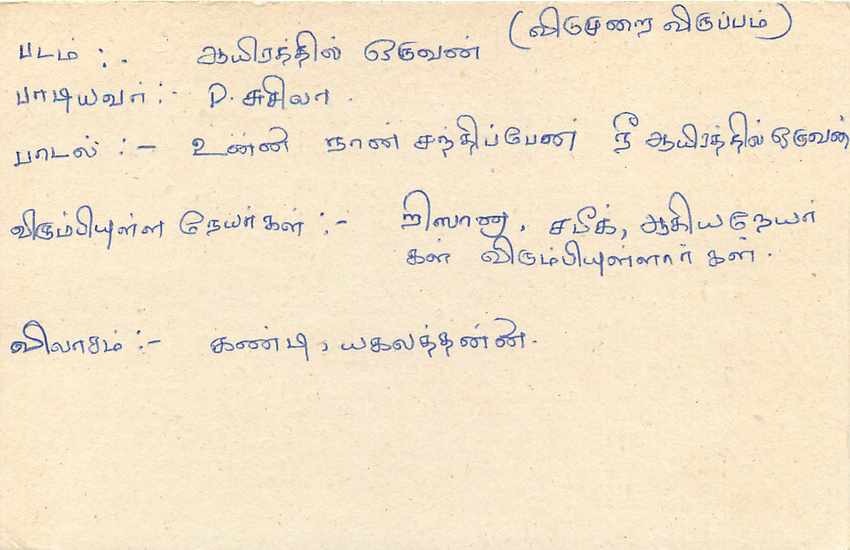 (விடுமுறை விருப்பம்)
படம் :. ஆயிரத்தில் ஒருவன்
பாடியவர் :- P. சுசிலா.
பாடல் :- உன்னை நான் சந்திப்பேன் நீ ஆயிரத்தில் ஒருவன்
விரும்பியுள்ள நேயர்கள் :- றிஸானு, சமீக், ஆகிய நேயர்
கள் விரும்பியுள்ளார்கள்.
விலாசம் :- கண்டி, யகலத்தன்னை.